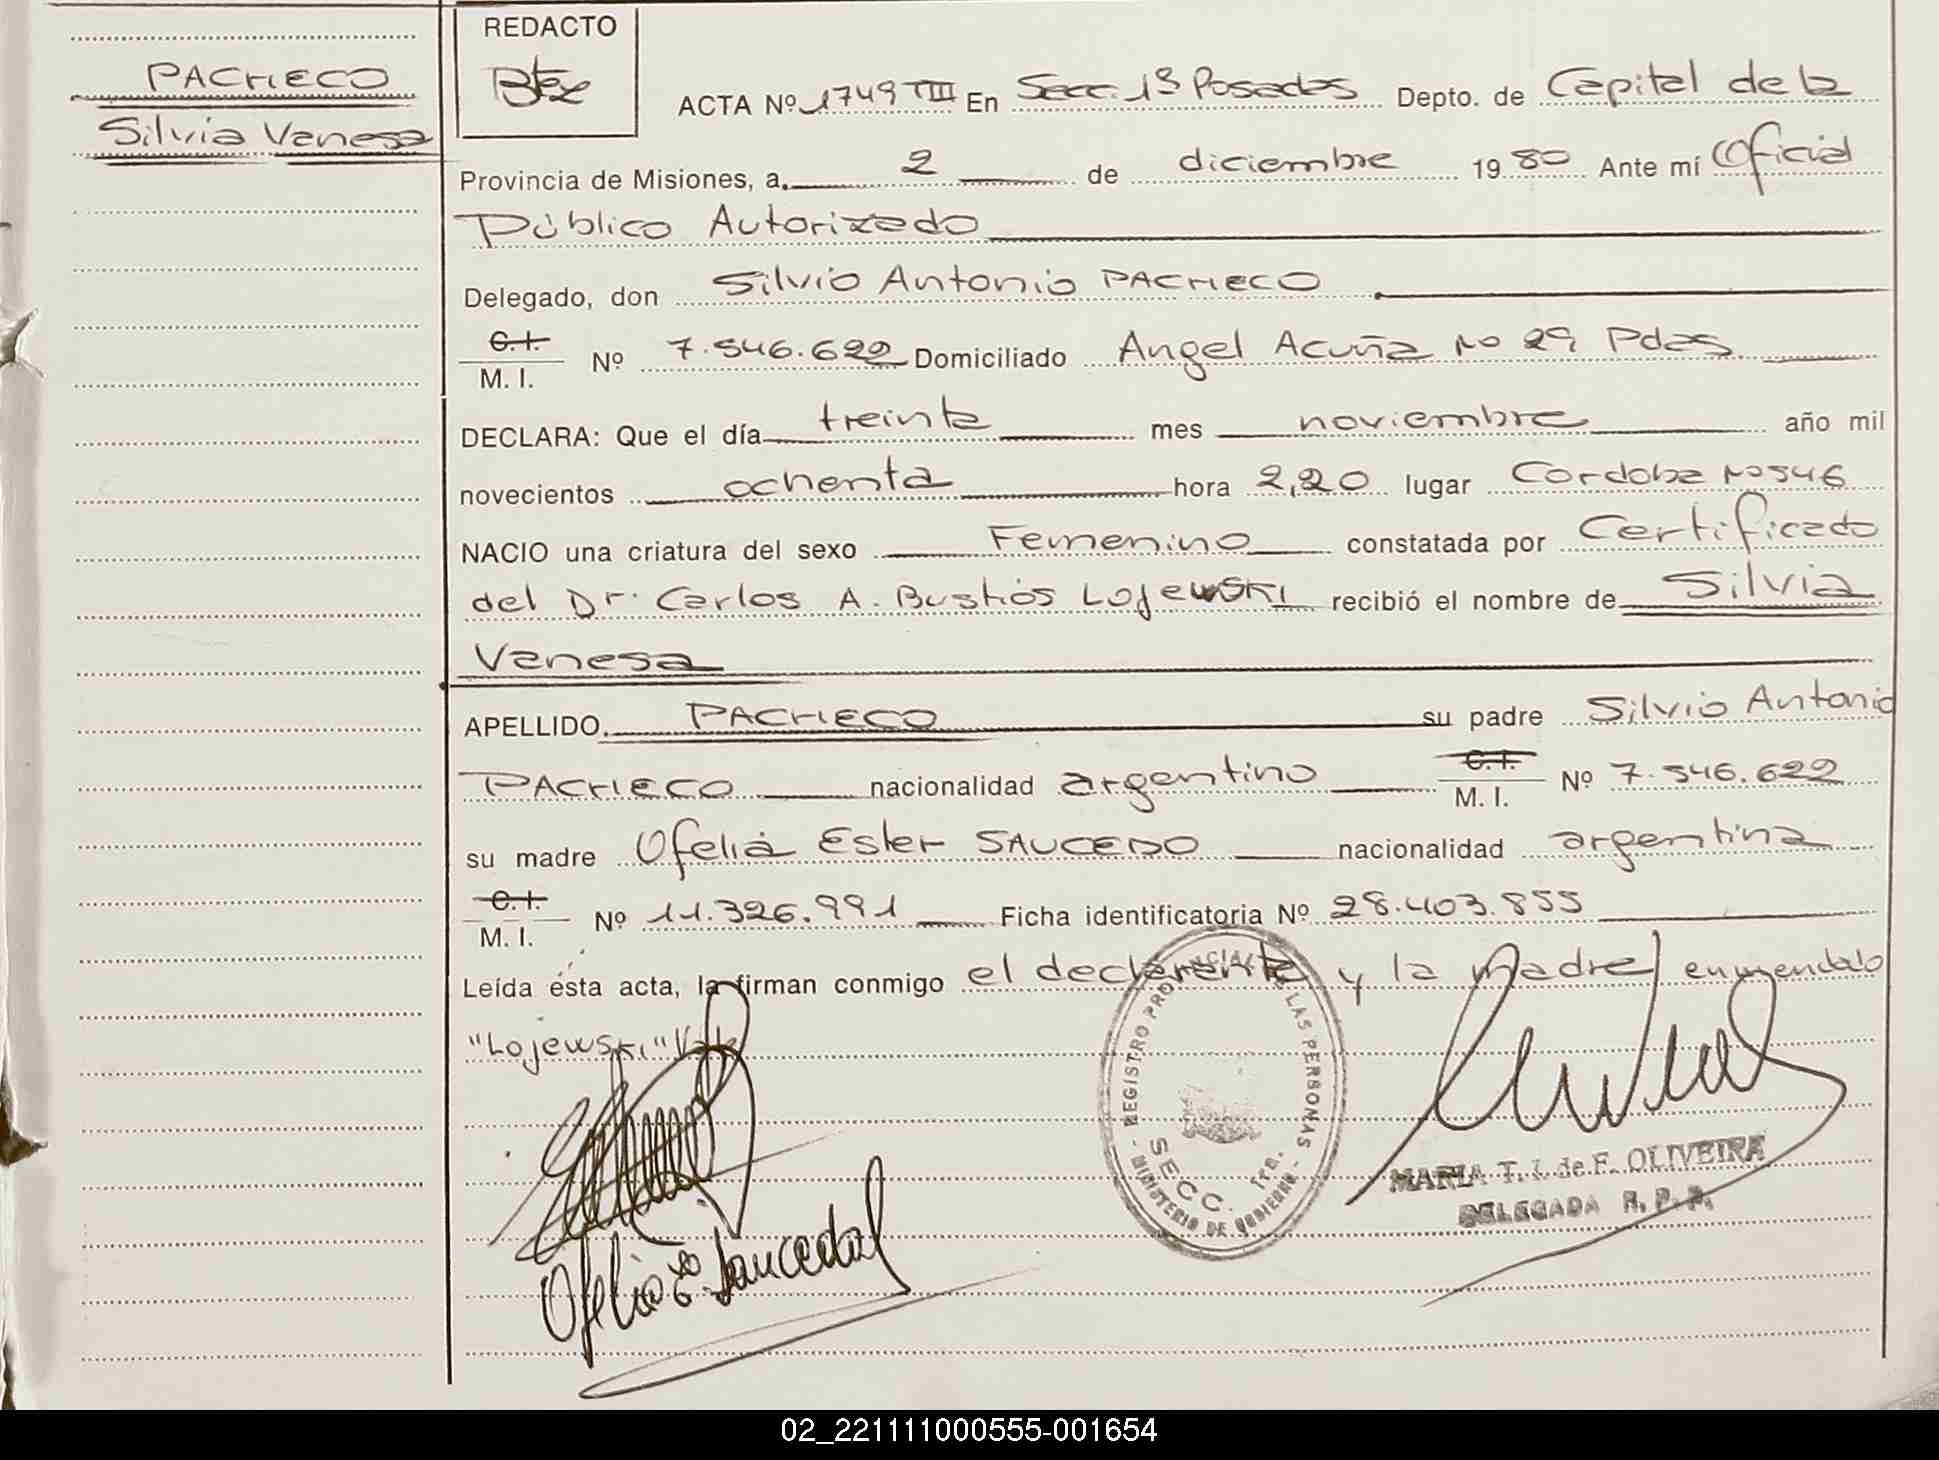 PACHECO
Silvia Vanesa
REDACTO
ACTA Nº 1749 TIII En Secc. 1ª Posadas Depto. de Capital de la
Provincia de Misiones, a 2 de diciembre 1980 Ante mí Oficial
Público Autorizado
Delegado, don Silvio Antonio PACHECO
C.I.
M. I. Nº 7.546.622 Domiciliado Angel Acuña Nº 29 Pdas
DECLARA: Que el día treinta mes noviembre año mil
novecientos ochenta hora 2,20 lugar Cordoba Nº 546
NACIO una criatura del sexo Femenino constatada por Certificado
del Dr. Carlos A. Bustos Lojewski recibió el nombre de Silvia
Vanesa
APELLIDO PACHECO su padre Silvio Antonio
PACHECO nacionalidad argentino C.I. M. I. Nº 7.546.622
su madre Ofelia Ester SAUCEDO nacionalidad argentina
C.I.
M. I. Nº 11.326.991 Ficha identificatoria Nº 28.403.855
Leída ésta acta, la firman conmigo el declarante y la madre enmendado
"Lojewski" Vale
REGISTRO PROVINCIAL DE LAS PERSONAS
SECC. 1ra.
MINISTERIO DE GOBIERNO
Ofelia E. Saucedo
MARIA T. I. de F. OLIVEIRA
DELEGADA R. P. P.
02_221111000555-001654